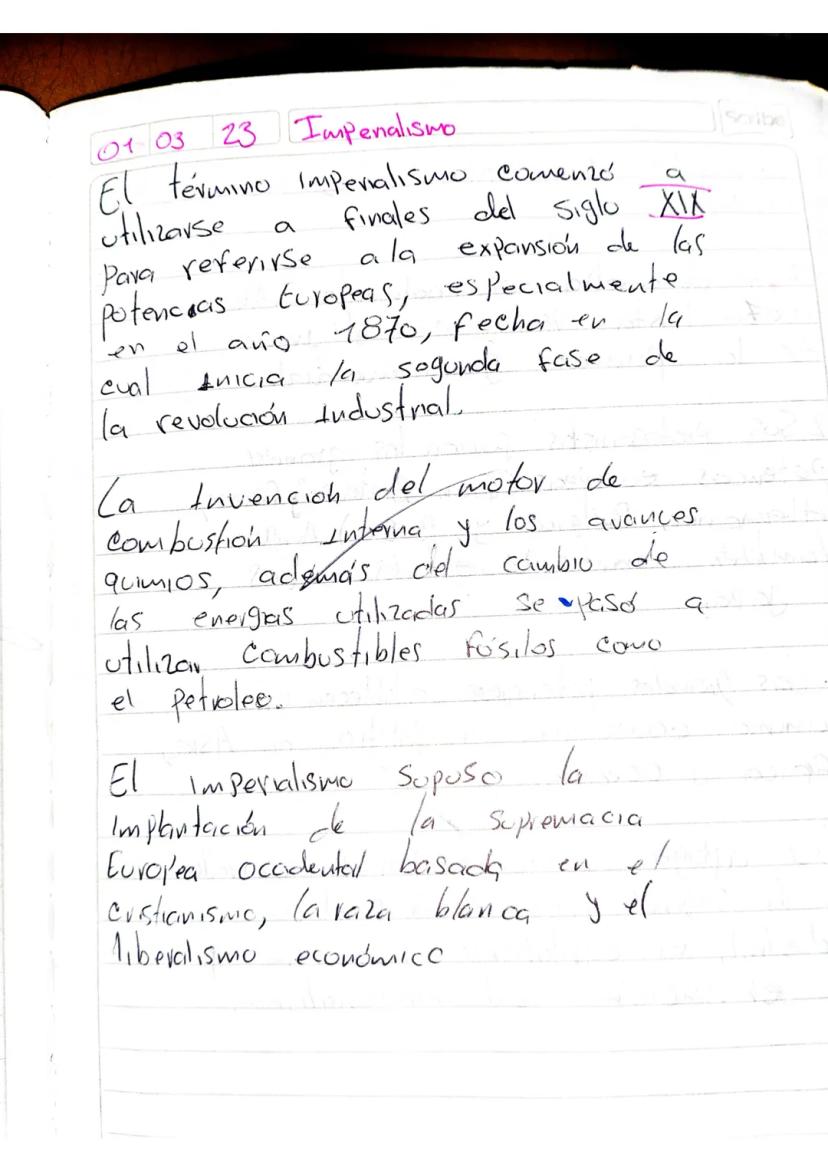 01 03 23 Imperialismo
Scribe
El término Imperialismo comenzó a
utilizarse a finales del siglo XIX
Para referirse a la expansión de las
potencias Europeas, especialmente
en el año 1870, fecha en la
cual Inicia la segunda fase de
la revolución Industrial.
La Invención del motor de
combustión Interna y los avances
quimios, además del cambio de
las energias utilizadas se paso a
utilizar combustibles fósilos como
el Petroleo.
El Imperialismo Supuso la
Implantación de la Supremacia
Europea occidental basada en el
cristianismo, la raza blanca y el
liberalismo económico